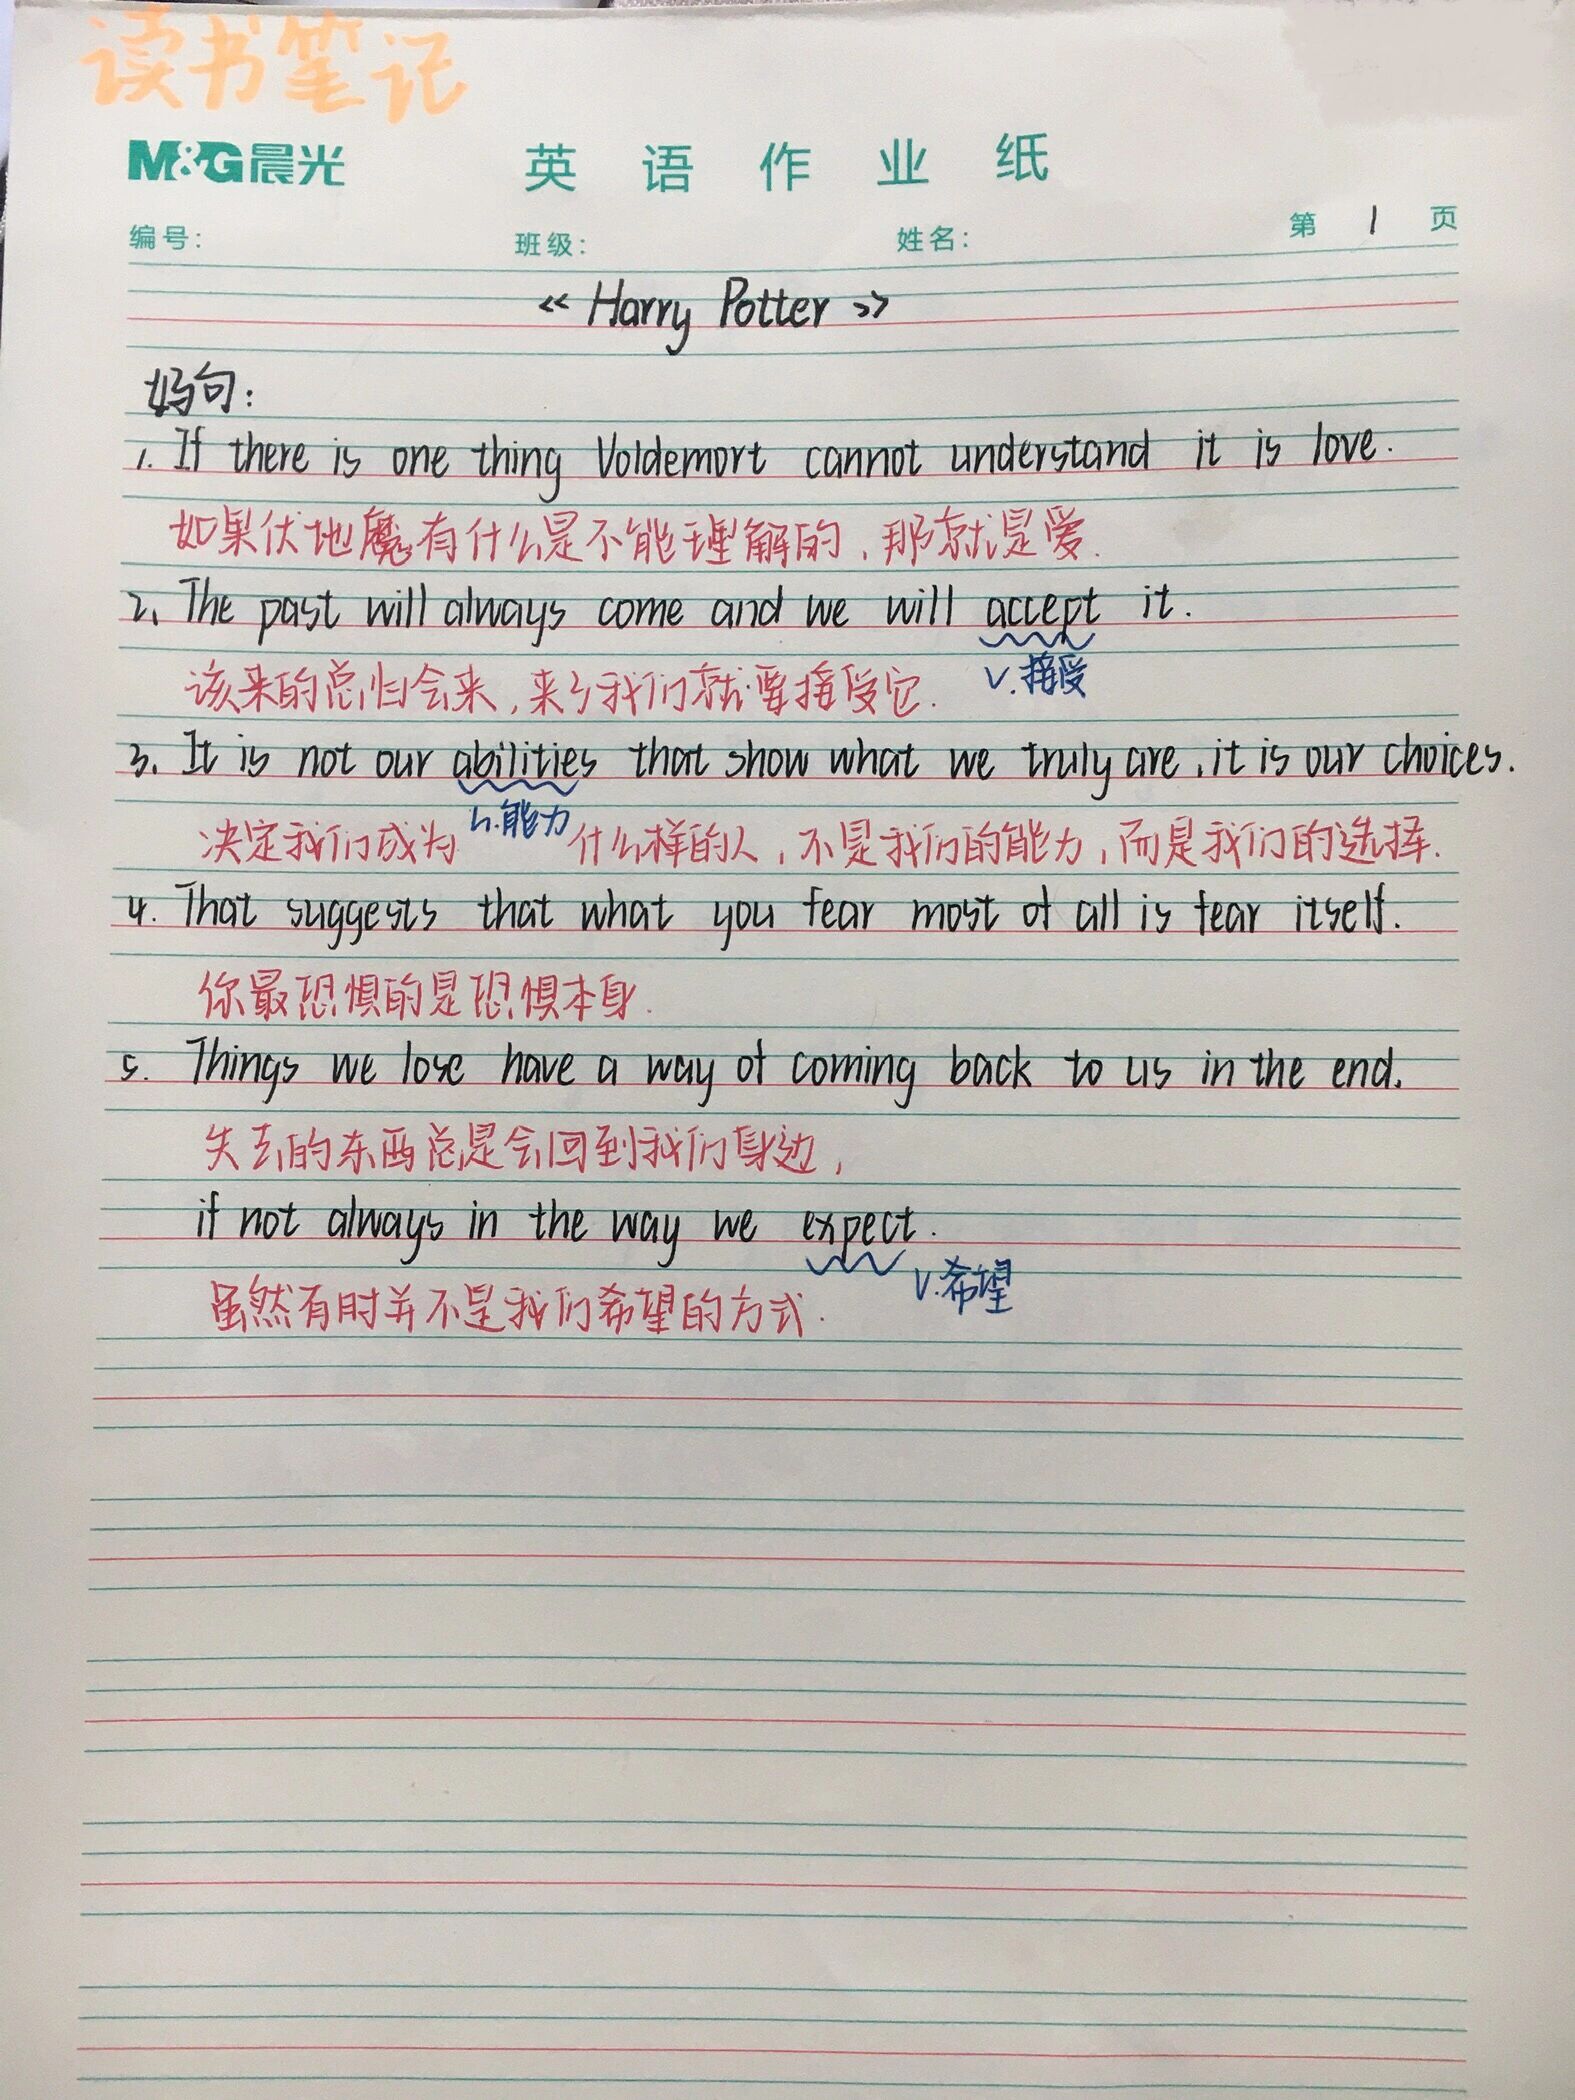 读书笔记
M&G晨光 英语作业纸
编号: 班级: 姓名: 第 1 页
<< Harry Potter >>
好句:
1. If there is one thing Voldemort cannot understand it is love.
如果伏地魔有什么是不能理解的,那就是爱.
2. The past will always come and we will accept it.
v.接受
该来的总归会来,来了我们就要接受它.
3. It is not our abilities that show what we truly are, it is our choices.
n.能力
决定我们成为什么样的人,不是我们的能力,而是我们的选择.
4. That suggests that what you fear most of all is fear itself.
你最恐惧的是恐惧本身.
5. Things we lose have a way of coming back to us in the end.
失去的东西总是会回到我们身边,
if not always in the way we expect.
v.希望
虽然有时并不是我们希望的方式.